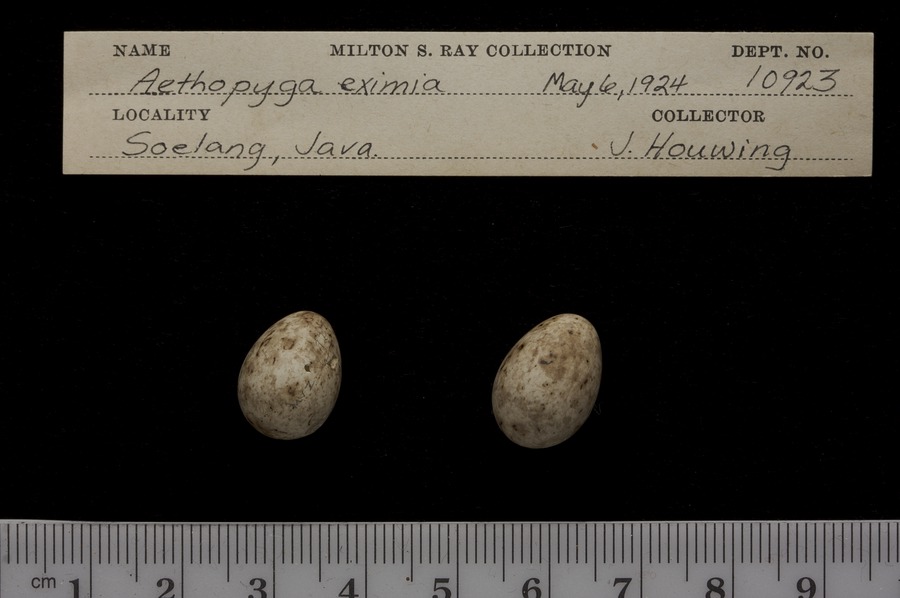 NAME MILTON S. RAY COLLECTION DEPT. NO.
Aethopyga eximia May 6, 1924 10923
LOCALITY COLLECTOR
Soelang, Java. J. Houwing
cm 1 2 3 4 5 6 7 8 9